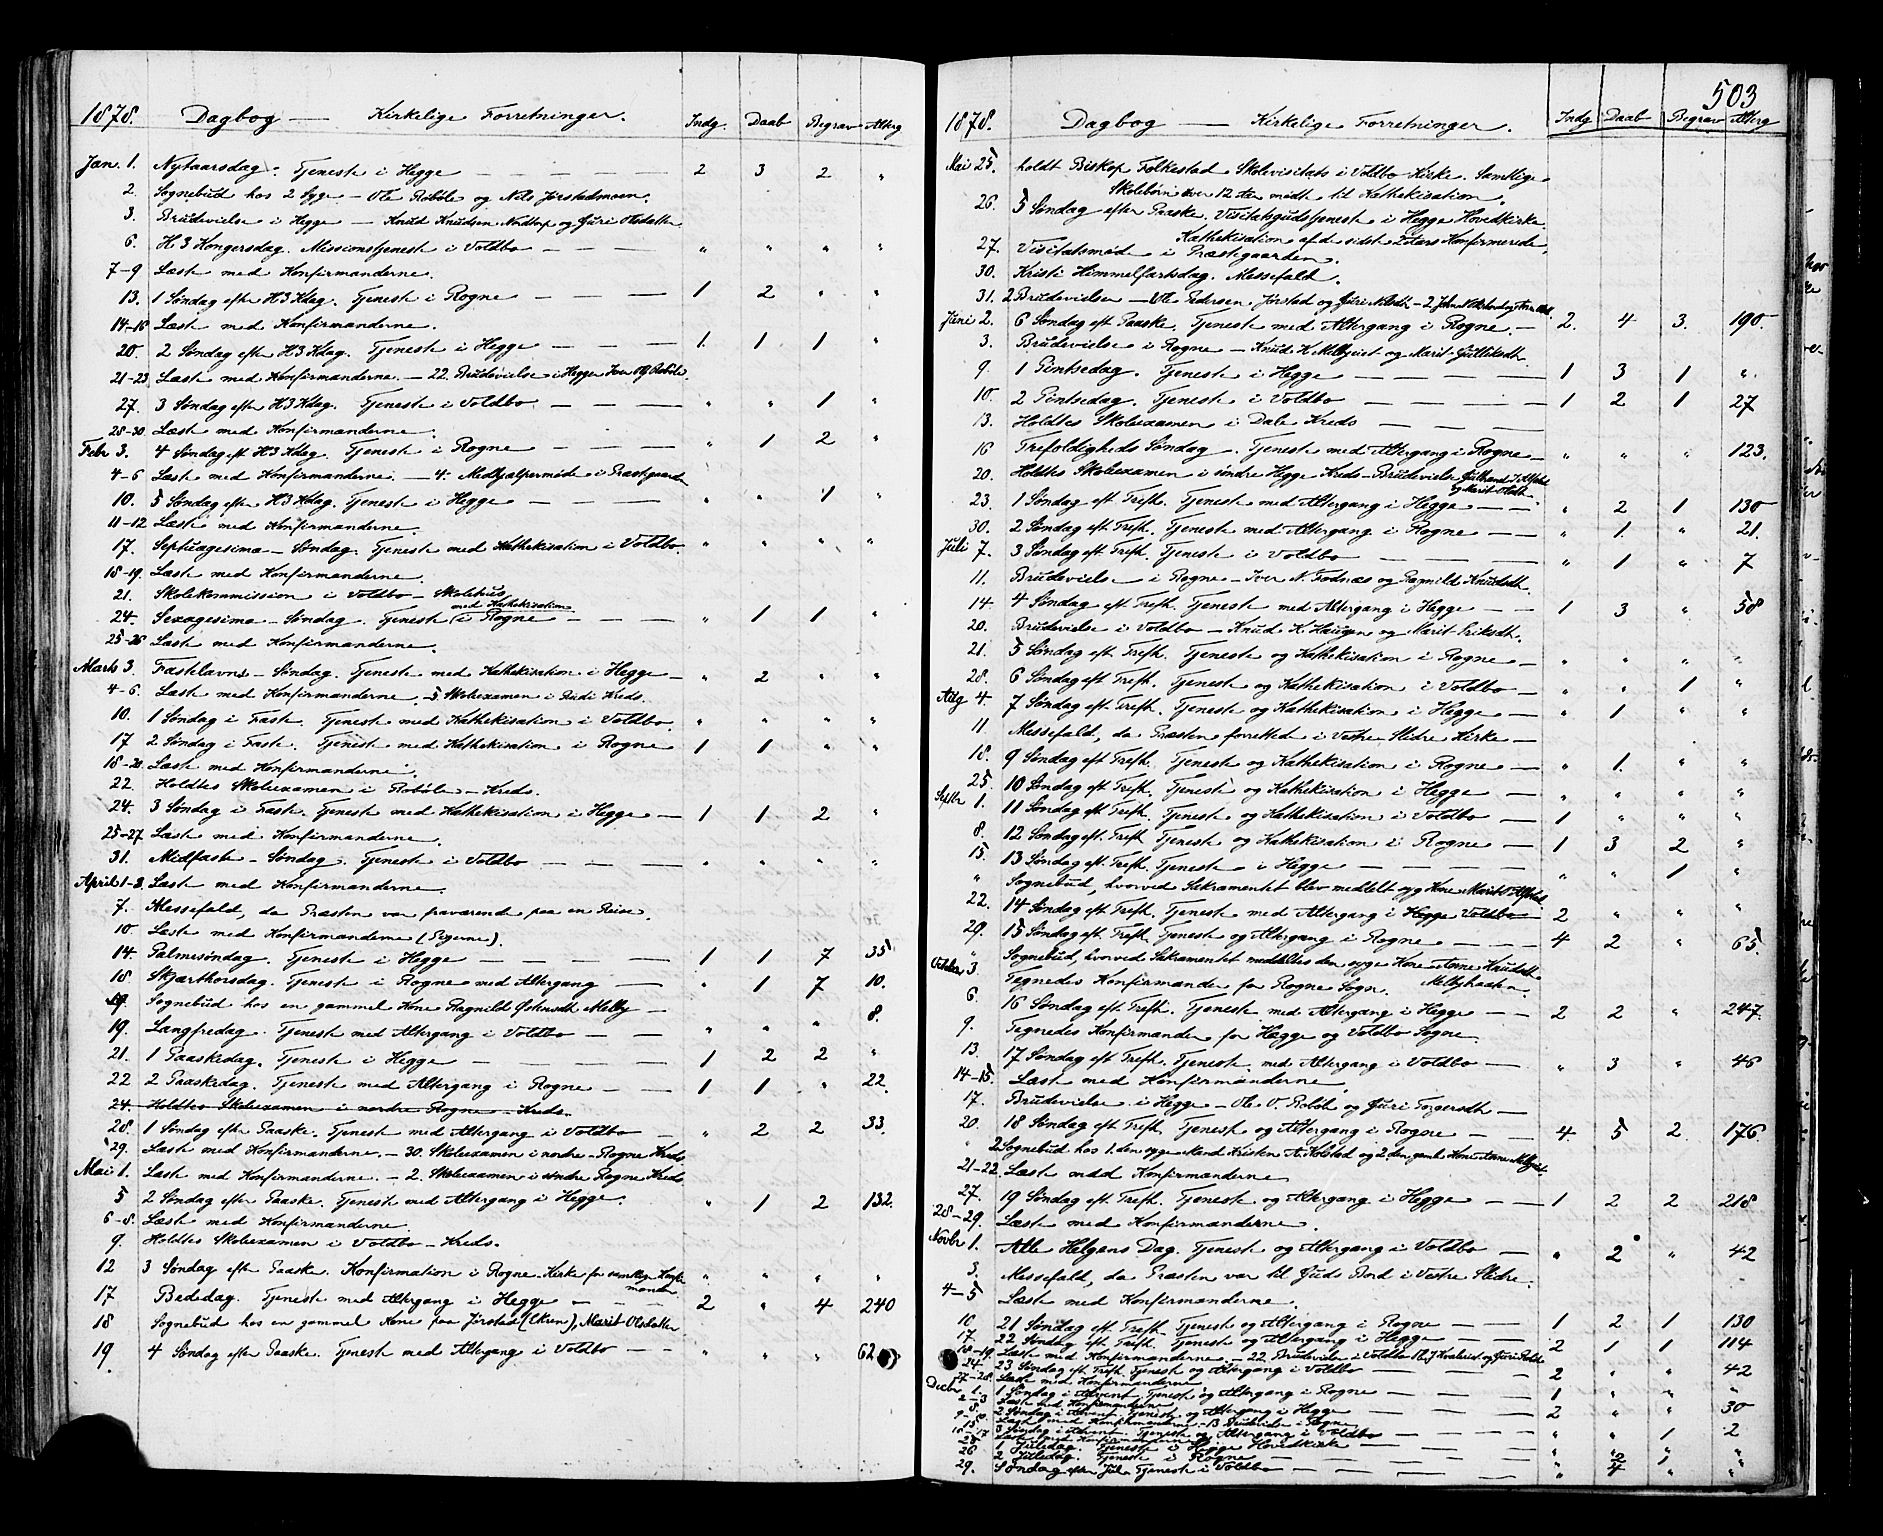 1878. Dagbog — Kirkelige Forretninger. Indg. Daab Begrav Alterg
Jan. 1. Nytaarsdag. Tjeneste i Hegge — 2 3 2 "
2. Sognebud hos 2 Syge — Ole Robøle og Nils Jørstadmoen.
3. Brudevielse i Hegge — Knud Knudsen Nordtorp og Guri Olsdatter
6. H. 3 Kongersdag. Missionstjeneste i Voldbo — " " " "
7-9 Læst med Konfirmanderne.
13. 1 Søndag efter H3Kdag. Tjeneste i Rogne — 1 2 " "
14-16 Læst med Konfirmanderne.
20. 2 Søndag efter H3Kdag. Tjeneste i Hegge — 1. 1 1 "
21-23 Læst med Konfirmanderne. — 22. Brudevielse i Hegge Iver Robøle.
27. 3 Søndag efter H3Kdag. Tjeneste i Voldbo — " " 1 "
28-30 Læst med Konfirmanderne.
Febr 3. 4 Søndag eft H3Kdag. Tjeneste i Rogne — " 1 2 "
4-6 Læst med Konfirmanderne. — 4. Medhjælpermøde i Præstgaarden
10. 5 Søndag efter H3Kdag. Tjeneste i Hegge — " " 1 "
11-12 Læst med Konfirmanderne.
17. Septuagesima - Søndag. Tjeneste med Kathekisation i Voldbo. " " " "
18-19. Læst med Konfirmanderne.
21. Skolekommission i Voldbo — Skolehus
24. Sexagesima - Søndag. Tjeneste med Kathekisation i Rogne — " 1 1 "
25-26 Læst med Konfirmanderne.
Marts 3. Fastelavns - Søndag. Tjeneste med Kathekisation i Hegge — " 2 " "
4-6. Læst med Konfirmanderne. 5 Skoleexamen i Kreds.
10. 1 Søndag i Faste. Tjeneste med Kathekisation i Voldbo. " " " "
17 2 Søndag i Faste. Tjeneste med Kathekisation i Rogne 1 1 " "
18-20. Læst med Konfirmanderne.
22. Holdtes Skoleexamen i Robøle - Kreds.
24. 3 Søndag i Faste. Tjeneste med Kathekisation i Hegge — 1 1 2 "
25-27 Læst med Konfirmanderne.
31. Midfaste - Søndag. Tjeneste i Voldbo — " " " "
April 1-3. Læst med Konfirmanderne.
7. Messefald, da Præsten var fraværende paa en Reise.
10 Læst med Konfirmanderne (Pigerne).
14. Palmesøndag. Tjeneste i Hegge — 1 1 7 35
18. Skjærthorsdag. Tjeneste i Rogne med Altergang — " 1 7 10.
Sognebud hos en gammel Kone Ragnild Melby —
19. Langfredag. Tjeneste med Altergang i Voldbo — " " " 8.
21. 1 Paaskedag. Tjeneste i Hegge — 1 2 2 "
22 2 Paaskedag. Tjeneste med Altergang i Rogne — 1 1 " 22.
24. Holdtes Skoleexamen i nordre Rogne Kreds.
28. 1 Søndag efter Paaske. Tjeneste med Altergang i Voldbo — " 2 2 33.
29. Læst med Konfirmanderne. — 30. Skoleexamen i nordre - Rogne Kreds
Mai 1. Læst med Konfirmanderne. — 2. Skoleexamen i søndre Rogne Kreds
5 2 Søndag efter Paaske. Tjeneste med Altergang i Hegge. " 1 2 132.
6-8. Læst med Konfirmanderne.
9. Holdtes Skoleexamen i Voldbo - Kreds.
12 3 Søndag efter Paaske. Konfirmation i Rogne Kirke for samtlige Konfir " " " "
manden
17 Bededag. Tjeneste med Altergang i Hegge — 2 " 4 240
18 Sognebud hos en gammel Kone paa Jørstad (Ekren), Marit Olsdatter
19 4 Søndag efter Paaske. Tjeneste med Altergang i Voldbo — " " " 62
503
1878. Dagbog — Kirkelige Forretninger. Indg Daab Begrav Alterg
Mai 25. holdt Biskop Folkestad Skolevisitats i Voldbo Kirke. Samtlige
Skolebørn over 12 Aar mødte til Kathekisation.
26. 5 Søndag efter Paaske. Visitatsgudstjeneste i Hegge Hovedkirke.
Kathekisation af de sidste 2 Aars Konfirmerede.
27. Visitatsmøde i Præstegaarden.
30. Kristi Himmelfartsdag. Messefald.
31. 2 Brudevielser — Ole Pedersen Jørstad og Guri
Juni 2. 6 Søndag eft Paaske. Tjeneste med Altergang i Rogne. — 2. 4 3. 190.
3. Brudevielse i Rogne — Knud K. Melqvist og Marit Gulliksdtr
9. 1 Pintsedag. Tjeneste i Hegge — 1 3 1 "
10. 2 Pintsedag. Tjeneste i Voldbo — 1 2 1 27
13. Holdtes Skoleexamen i Dale Kreds —
16 Trefoldigheds Søndag. Tjeneste med Altergang i Rogne — " " " 123.
20. Holdtes Skoleexamen i søndre Hegge Kreds - Brudevielse
og Marit
23. 1 Søndag eft Trefh. Tjeneste med Altergang i Hegge — " 2 1 130
30. 2 Søndag eft Trefh. Tjeneste med Altergang i Rogne — " 1. " 21.
Juli 7. 3 Søndag eft Trefh. Tjeneste i Voldbo — " 1 " 7
11. Brudevielse i Rogne — Iver N. Fodnæs og Ragnild Knudsdtr.
14. 4 Søndag eft Trefh. Tjeneste med Altergang i Hegge — 1 3 " 58
20. Brudevielse i Voldbo — Knud K. Haugen og Marit Eriksdtr.
21. 5 Søndag eft Trefh. Tjeneste og Kathekisation i Rogne — " " " "
28. 6 Søndag eft Trefh. Tjeneste og Kathekisation i Voldbo — " " 1 "
Aug 4. 7 Søndag eft Trefh. Tjeneste og Kathekisation i Hegge — " 1 " "
11. Messefald, da Præsten forrettede i Vestre Slidre Kirke —
18. 9 Søndag eft Trefh. Tjeneste og Kathekisation i Rogne — " 1. " "
25. 10 Søndag eft Trefh. Tjeneste og Kathekisation i Hegge — " " " "
Septbr 1. 11 Søndag eft Trefh. Tjeneste og Kathekisation i Voldbo — 1 " " "
8. 12 Søndag eft. Trefh. Tjeneste og Kathekisation i Rogne — 1 3 2 "
15. 13 Søndag eft. Trefh. Tjeneste i Hegge — " " 1 "
" Sognebud, hvorved Sakramentet blev meddelt syge Kone Marit
22. 14 Søndag eft. Trefh. Tjeneste med Altergang i Hegge Voldbo — 2 " " "
29. 15 Søndag eft Trefh. Tjeneste og Altergang i Rogne — 4 2 " 65.
" Sognebud, hvorved Sakramentet meddeltes den syge Kone Anne Knudsdtr
Melbyhaahn.
Oktober 3. Tegnedes Konfirmander for Rogne Sogn.
6. 16 Søndag eft Trefh. Tjeneste med Altergang i Hegge — 2 2 " 247.
9. Tegnedes Konfirmander for Hegge og Voldbo Sogne.
13. 17 Søndag eft Trefh. Tjeneste med Altergang i Voldbo — " 3 " 46
14-15. Læst med Konfirmanderne.
17. Brudevielse i Hegge — Ole O. Robøle og Guri Torgersdtr —
20. 18 Søndag eft Trefh. Tjeneste og Altergang i Rogne — 4 5 2. 176
" 2 Sognebud hos 1. den syge Mand Kristen A. Kolstad og 2 den gamle Kone Anne Melqvist
21-22. Læst med Konfirmanderne
27. 19 Søndag eft. Trefh. Tjeneste og Altergang i Hegge — 1 2 2 218
28-29. Læst med Konfirmanderne.
Novbr 1. Alle Helgens Dag. Tjeneste og Altergang i Voldbo — " 2 " 42
3. Messefald, da Præsten var til Guds Bord i Vestre Slidre.
4-5 Læst med Konfirmanderne.
10 21 Søndag eft Trefh. Tjeneste og Altergang i Rogne — 1 2 1 130
17. 22 Søndag eft Trefh. Tjeneste og Altergang i Hegge — 2 1 1 114
18-19. Læst med Konfirmanderne. — 22. Brudevielse i Voldbo
24. 23 Søndag eft Trefh. Tjeneste og Altergang i Voldbo — 2 " " 42
Læst med Konfirmanderne
Decbr 1. 1 Søndag i Advent. Tjeneste og Altergang i Rogne — 1 " " "
Læst med Konfirmanderne
8. 2 Søndag i Advent. Tjeneste og Altergang i Hegge — 2 " " 30
Læst med Konfirmanderne - 13 Brudevielse i Rogne
15. 3 Søndag i Advent. Tjeneste og Altergang i Voldbo — " " 1 2
Læst med Konfirmanderne
1 Juledag. Tjeneste i Hegge Hovedkirke — " " " "
26 2 Juledag. Tjeneste i Rogne — " 2 1 "
29. Søndag efter Jul. Tjeneste i Voldbo — " 4 " "